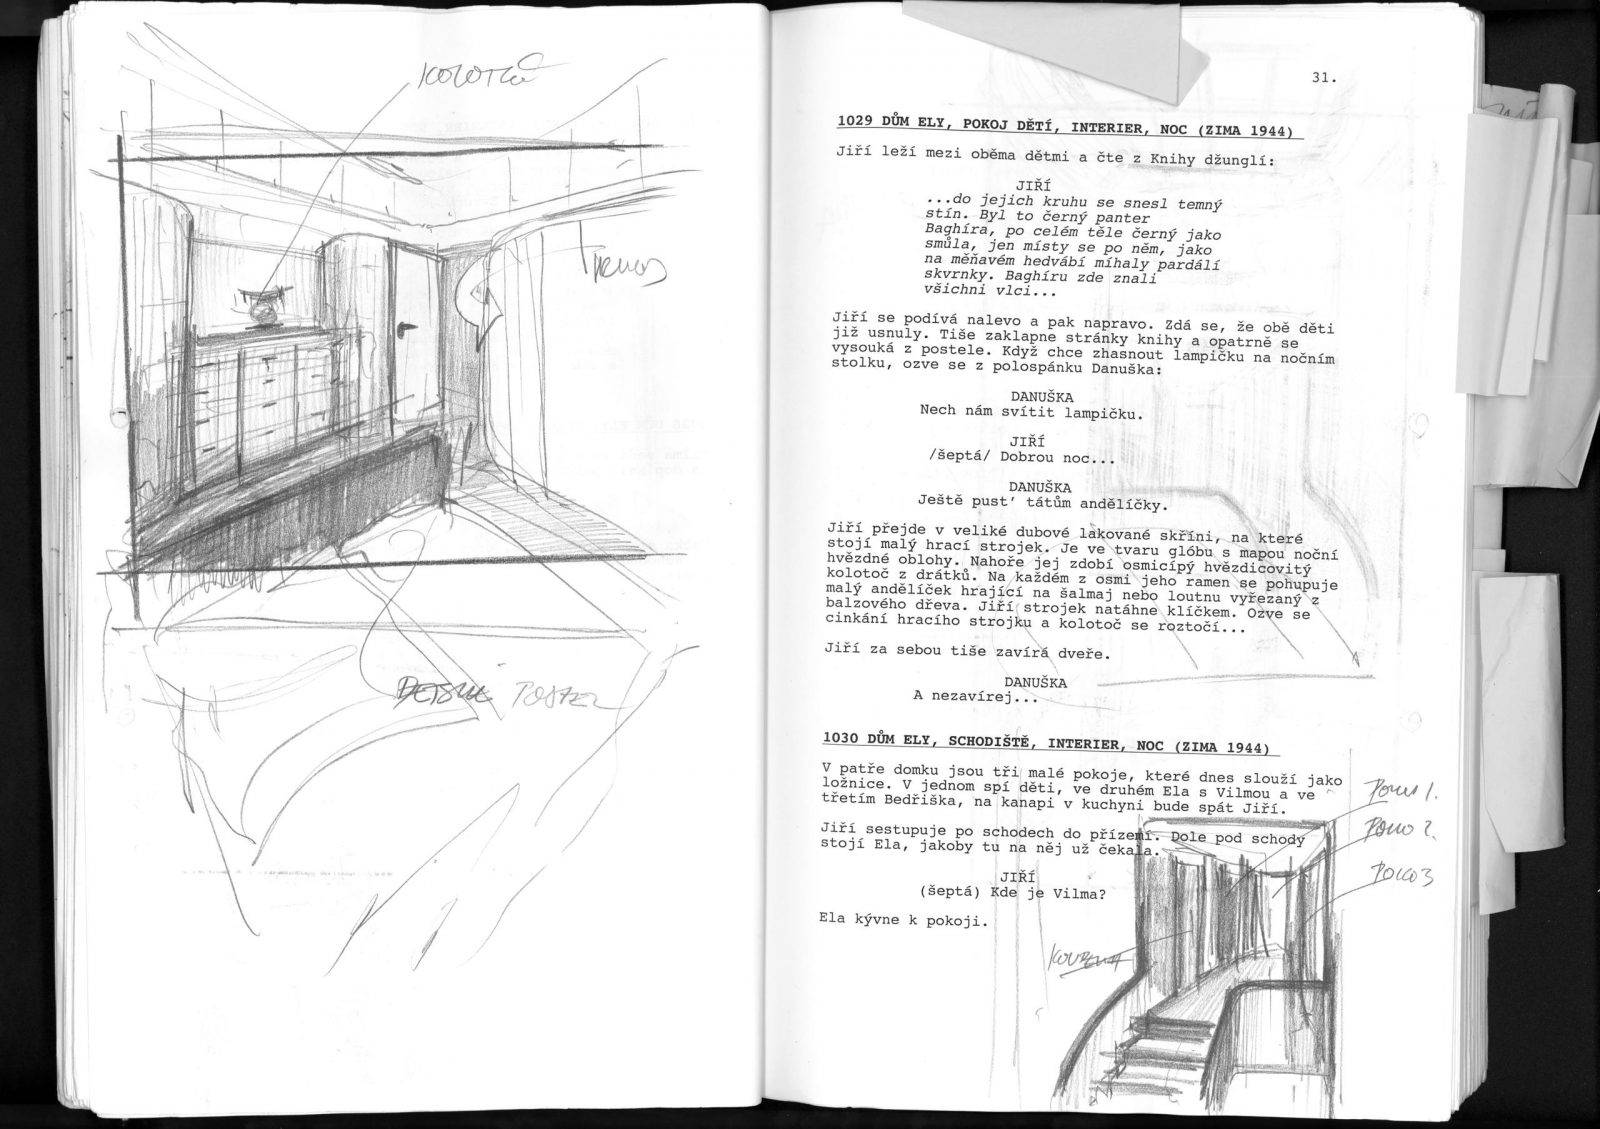 KOLOTOČ
DETSKÁ POSTEL
31.
1029 DŮM ELY, POKOJ DĚTÍ, INTERIER, NOC (ZIMA 1944)
Jiří leží mezi oběma dětmi a čte z Knihy džunglí:
JIŘÍ
...do jejich kruhu se snesl temný
stín. Byl to černý panter
Baghíra, po celém těle černý jako
smůla, jen místy se po něm, jako
na měňavém hedvábí míhaly pardálí
skvrnky. Baghíru zde znali
všichni vlci...
Jiří se podívá nalevo a pak napravo. Zdá se, že obě děti
již usnuly. Tiše zaklapne stránky knihy a opatrně se
vysouká z postele. Když chce zhasnout lampičku na nočním
stolku, ozve se z polospánku Danuška:
DANUŠKA
Nech nám svítit lampičku.
JIŘÍ
/šeptá/ Dobrou noc...
DANUŠKA
Ještě pusť tátům andělíčky.
Jiří přejde v veliké dubové lakované skříni, na které
stojí malý hrací strojek. Je ve tvaru glóbu s mapou noční
hvězdné oblohy. Nahoře jej zdobí osmicípý hvězdicovitý
kolotoč z drátků. Na každém z osmi jeho ramen se pohupuje
malý andělíček hrající na šalmaj nebo loutnu vyřezaný z
balzového dřeva. Jiří strojek natáhne klíčkem. Ozve se
cinkání hracího strojku a kolotoč se roztočí...
Jiří za sebou tiše zavírá dveře.
DANUŠKA
A nezavírej...
1030 DŮM ELY, SCHODIŠTĚ, INTERIER, NOC (ZIMA 1944)
V patře domku jsou tři malé pokoje, které dnes slouží jako
ložnice. V jednom spí děti, ve druhém Ela s Vilmou a ve
třetím Bedřiška, na kanapi v kuchyni bude spát Jiří.
Jiří sestupuje po schodech do přízemí. Dole pod schody
stojí Ela, jakoby tu na něj už čekala.
JIŘÍ
(šeptá) Kde je Vilma?
Ela kývne k pokoji.
POKOJ 1.
POKOJ 2.
POKOJ 3